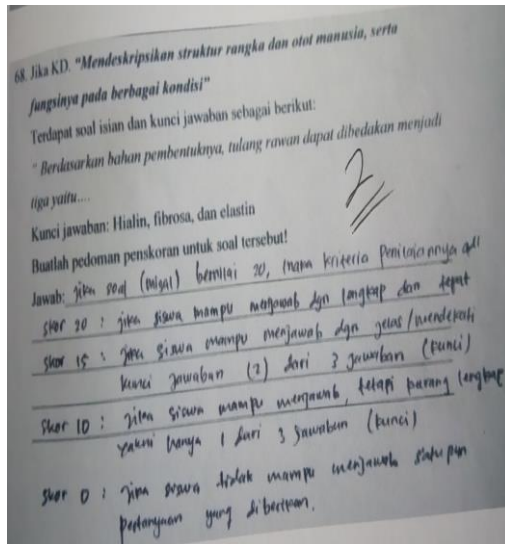 68. Jika KD. "Mendeskripsikan struktur rangka dan otot manusia, serta
fungsinya pada berbagai kondisi"
Terdapat soal isian dan kunci jawaban sebagai berikut:
" Berdasarkan bahan pembentuknya, tulang rawan dapat dibedakan menjadi
tiga yaitu....
2
Kunci jawaban: Hialin, fibrosa, dan elastin
Buatlah pedoman penskoran untuk soal tersebut!
Jawab: jika soal (misal) bernilai 20, maka kriteria penilaiannya adl
skor 20 : jika siswa mampu menjawab dgn lengkap dan tepat
skor 15 : jika siswa mampu menjawab dgn jelas/mendekati
kunci jawaban (2) dari 3 jawaban (kunci)
skor 10 : jika siswa mampu menjawab, tetapi kurang lengkap
yakni hanya 1 dari 3 jawaban (kunci)
skor 0 : jika siswa tidak mampu menjawab satu pun
pertanyaan yang diberikan.